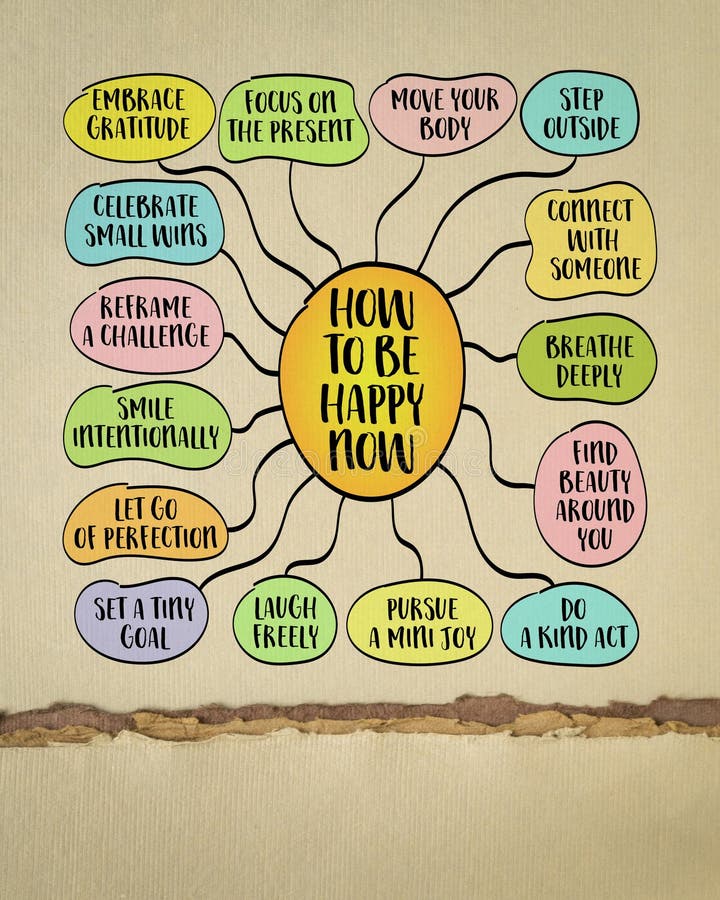 EMBRACE
GRATITUDE
FOCUS ON
THE PRESENT
MOVE YOUR
BODY
STEP
OUTSIDE
CELEBRATE
SMALL WINS
CONNECT
WITH
SOMEONE
REFRAME
A CHALLENGE
HOW
TO BE
HAPPY
NOW
BREATHE
DEEPLY
SMILE
INTENTIONALLY
FIND
BEAUTY
AROUND
YOU
LET GO
OF PERFECTION
SET A TINY
GOAL
LAUGH
FREELY
PURSUE
A MINI JOY
DO
A KIND ACT